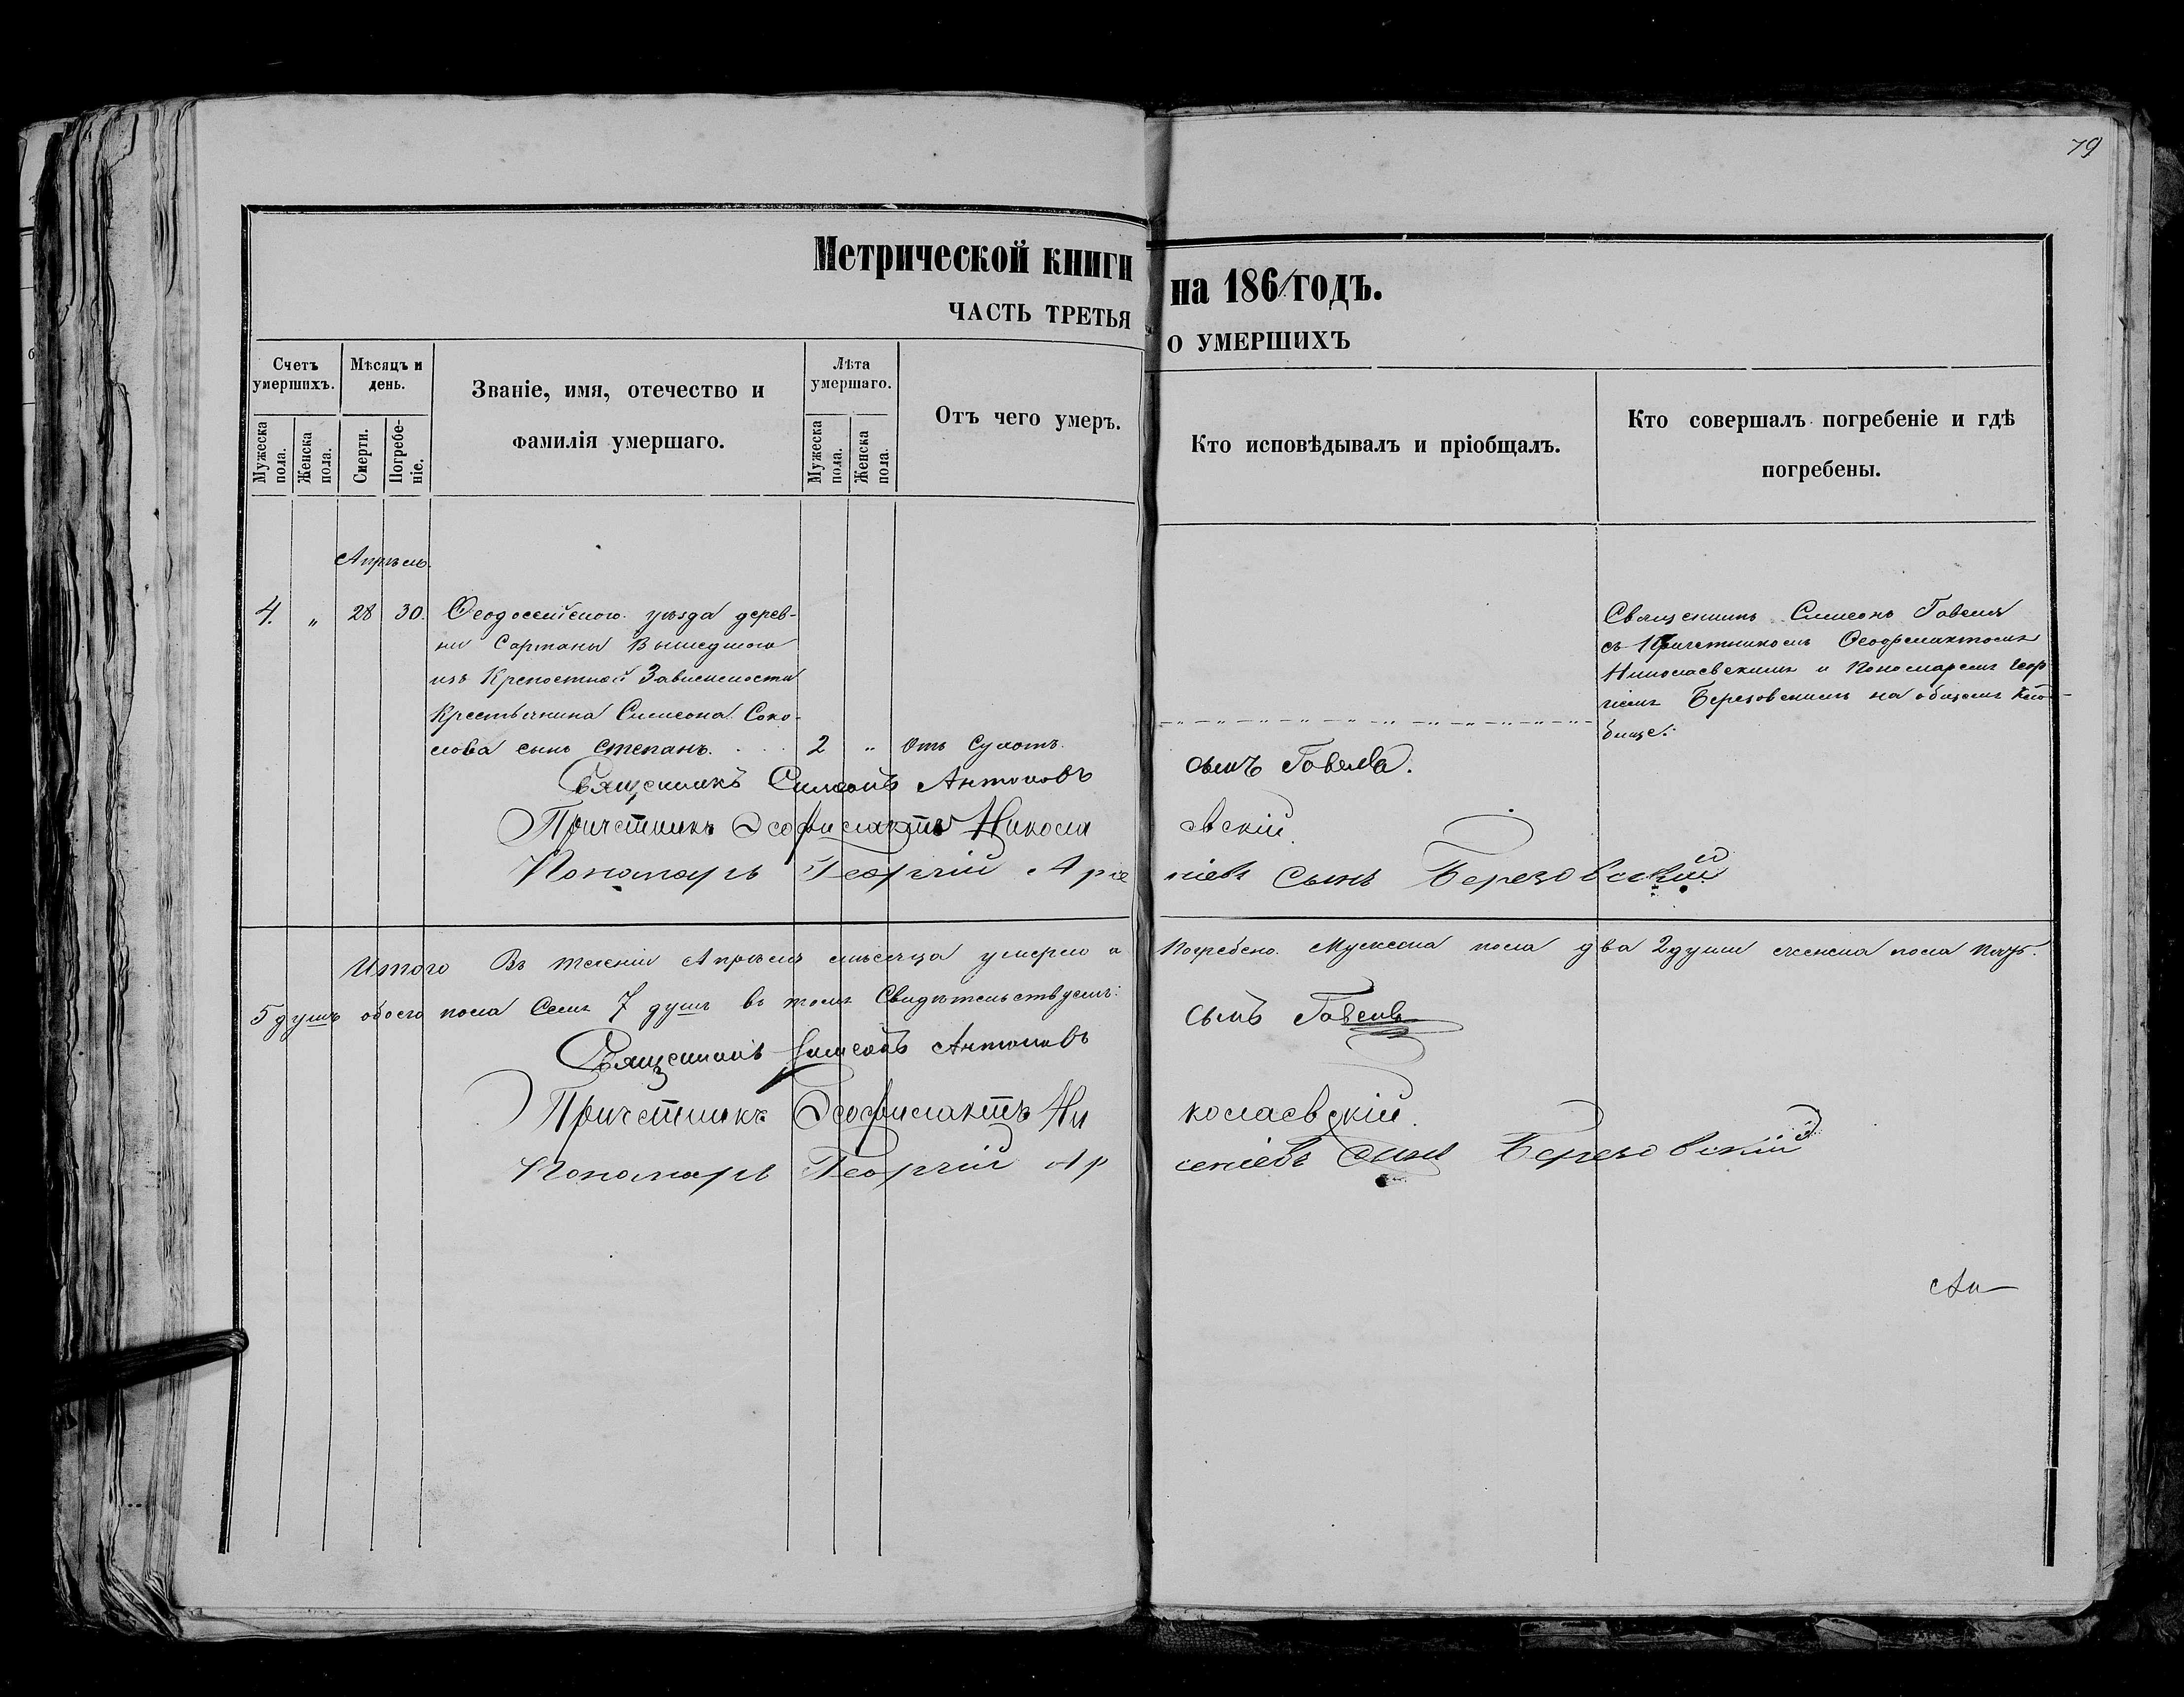 79
Метрической книги на 1861 годъ.
ЧАСТЬ ТРЕТЬЯ О УМЕРШИХЪ
Счетъ умершихъ.
Мѣсяцъ и день.
Званіе, имя, отечество и фамилія умершаго.
Лѣта умершаго.
Отъ чего умеръ.
Кто исповѣдывалъ и пріобщалъ.
Кто совершалъ погребеніе и гдѣ погребены.
Мужеска пола.
Женска пола.
Смерти.
Погребе-ніе.
Мужеска пола.
Женска пола.
Апрѣль.
4. " 28 30. Ѳеодосейского уѣзда дерев-
ни Сартаны Вышедшого
изъ Крепостной Зависимости
Крестьянина Симеона Соко-
лова сынъ Степанъ. 2 " Отъ Сухотъ.
Священникъ Симеонъ Гавеля
съ Причетникомъ Ѳеофилактомъ
Николаевскимъ и Пономаремъ Геор
гіемъ Березовскимъ на общемъ Клад-
бище.
Священникъ Симеонъ Антоновъ сынъ Гавеля.
Причетникъ Ѳеофилактъ Николаевскій.
Пономарь Георгій Арсеніевъ Сынъ Березовскій
Итого Въ теченіи Апрѣля мѣсяца умерло а Погребено. Мужеска пола два 2 души женска пола пять.
5 душъ обоего пола Семь 7 душъ въ томъ Свидѣтельствуемъ:
Священникъ Симеонъ Антоновъ сынъ Гавеля
Причетникъ Ѳеофилактъ Николаевскій.
Пономарь Георгій Арсеніевъ Сынъ Березовскій